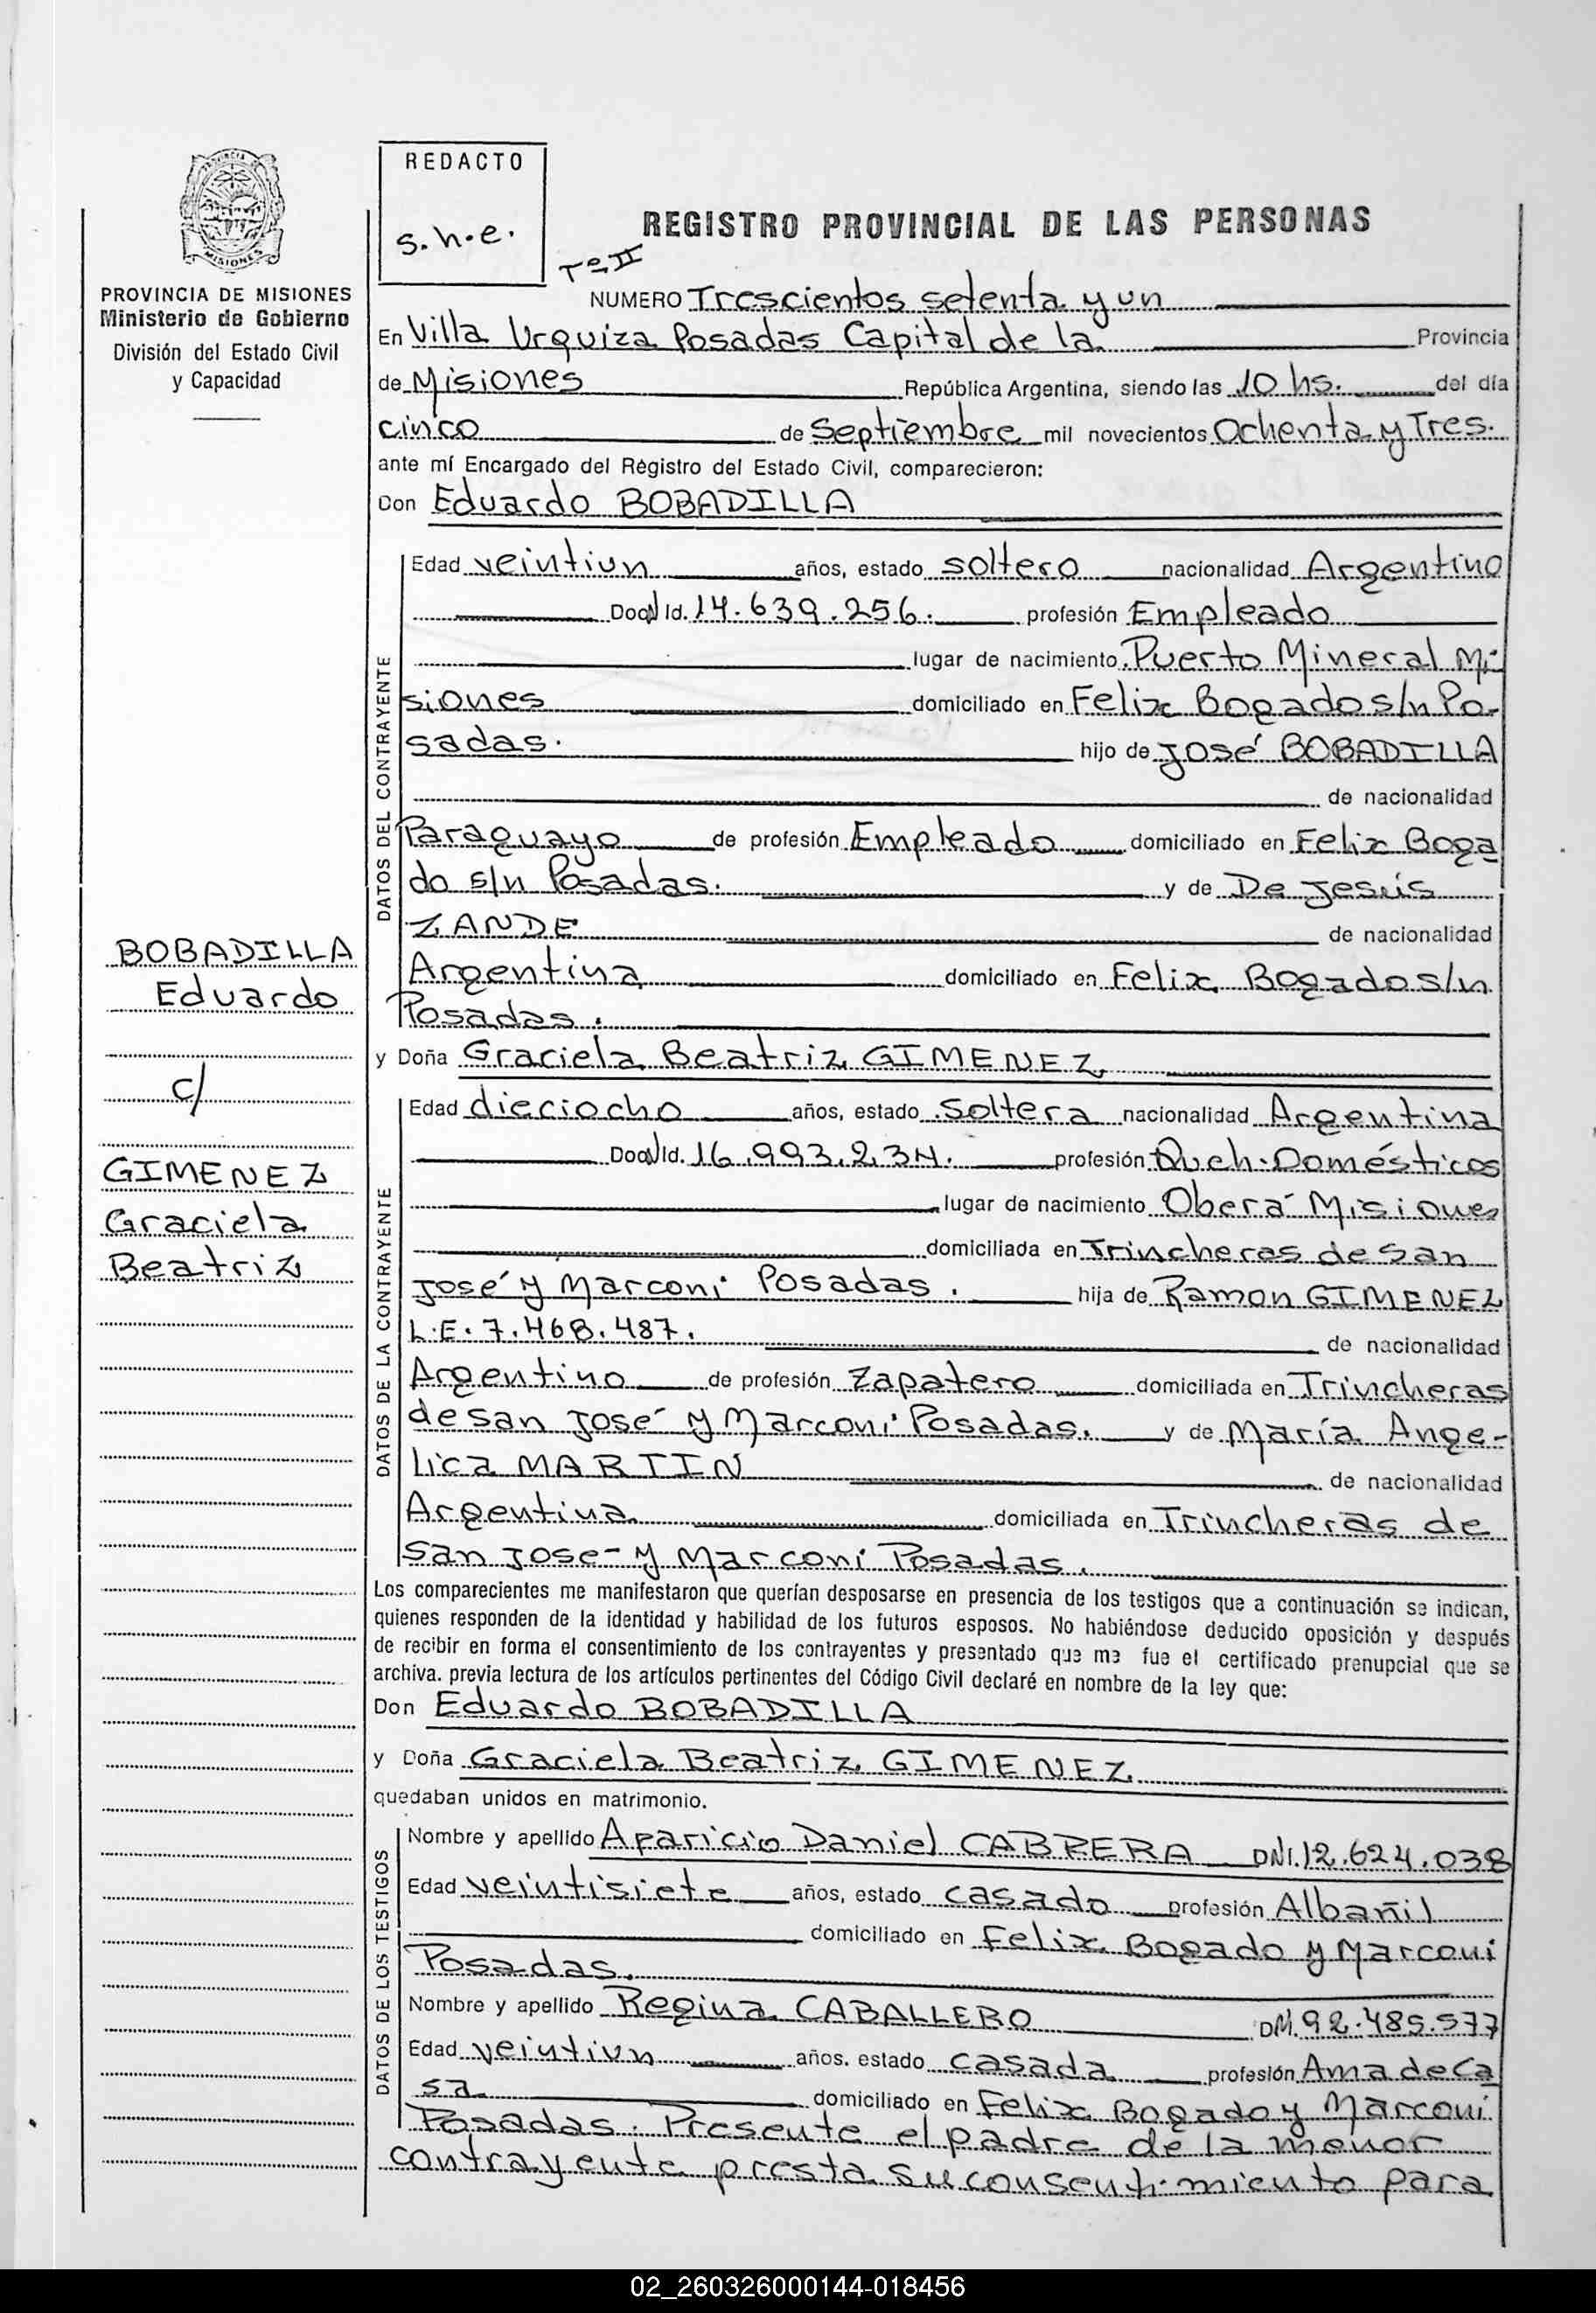 REDACTO
s.h.e.
REGISTRO PROVINCIAL DE LAS PERSONAS
Tº II
PROVINCIA DE MISIONES
Ministerio de Gobierno
División del Estado Civil
y Capacidad
NUMERO Trescientos setenta y un
En Villa Urquiza Posadas Capital de la Provincia
de Misiones República Argentina, siendo las 10 hs. del día
cinco de Septiembre mil novecientos Ochenta y Tres.
ante mí Encargado del Registro del Estado Civil, comparecieron:
Don Eduardo BOBADILLA
DATOS DEL CONTRAYENTE
Edad veintiun años, estado soltero nacionalidad Argentino
Id. 14.639.256. profesión Empleado
lugar de nacimiento Puerto Mineral Mi
siones domiciliado en Felix Bogado s/n Po-
sadas. hijo de José BOBADILLA
de nacionalidad
Paraguayo de profesión Empleado domiciliado en Felix Boga
do s/n Posadas. y de De Jesús
ZANDE de nacionalidad
Argentina domiciliado en Felix Bogado s/n
Posadas.
BOBADILLA
Eduardo
c/
GIMENEZ
Graciela
Beatriz
y Doña Graciela Beatriz GIMENEZ
DATOS DE LA CONTRAYENTE
Edad dieciocho años, estado Soltera nacionalidad Argentina
Id. 16.993.234. profesión Queh. Domésticos
lugar de nacimiento Oberá Misiones
domiciliada en Trincheras de San
José y Marconi Posadas. hija de Ramon GIMENEZ
L.E. 7.468.487. de nacionalidad
Argentino de profesión Zapatero domiciliada en Trincheras
de san José y Marconi Posadas. y de María Ange-
lica MARTIN de nacionalidad
Argentina domiciliada en Trincheras de
San Jose y Marconi Posadas.
Los comparecientes me manifestaron que querían desposarse en presencia de los testigos que a continuación se indican,
quienes responden de la identidad y habilidad de los futuros esposos. No habiéndose deducido oposición y después
de recibir en forma el consentimiento de los contrayentes y presentado que me fue el certificado prenupcial que se
archiva. previa lectura de los artículos pertinentes del Código Civil declaré en nombre de la ley que:
Don Eduardo BOBADILLA
y Doña Graciela Beatriz GIMENEZ
quedaban unidos en matrimonio.
DATOS DE LOS TESTIGOS
Nombre y apellido Aparicio Daniel CABRERA DNI. 12.624.038
Edad veintisiete años, estado casado profesión Albañil
domiciliado en Felix Bogado y Marconi
Posadas.
Nombre y apellido Regina CABALLERO DNI. 92.485.577
Edad veintiun años. estado casada profesión Ama de Ca
sa domiciliado en Felix Bogado y Marconi
Posadas. Presente el padre de la menor
contrayente presta su consentimiento para
02_260326000144-018456